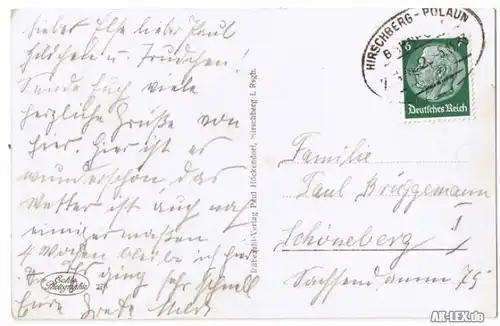 Lieber Else lieber Paul
u. Trudchen!
Sende Euch viele
herzliche Grüße von
hier. Hier ist es
wunderschön, das
Wetter ist auch
einigermaßen
4 Wochen bleibe ich hier
Es ging sehr schnell
Eure Grete
Echte
Photographie
Rübezahl-Verlag Paul Höckendorf, Hirschberg i. Rsgb.
HIRSCHBERG - POLAUN
6
Deutsches Reich
Familie
Paul Brüggemann
Schöneberg!
Sachsendamm 75
AK-LEX.de